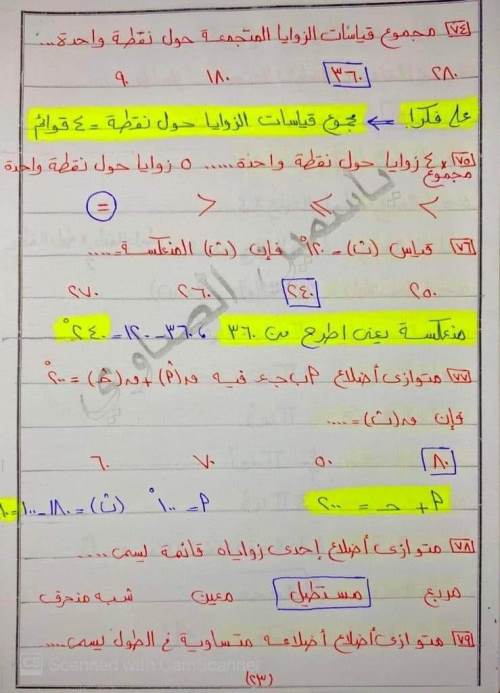 ٧٤ مجموع قياسات الزوايا المتجمعة حول نقطة واحدة...
٢٨٠ ٣٦٠ ١٨٠ ٩٠
على فكرا ← مجموع قياسات الزوايا حول نقطة = ٤ قوائم
٧٥ مجموع ٤ زوايا حول نقطة واحدة ..... ٥ زوايا حول نقطة واحدة
< ≤ > =
٧٦ قياس (ث) = ١٢٠° فإن (ث) المنعكسة = .....
٢٥٠ ٢٤٠ ٢٦٠ ٢٧٠
منعكسة يعنى اطرح من ٣٦٠ ، ٣٦٠ - ١٢٠ = ٢٤٠°
٧٧ متوازى أضلاع ٩ ب ج ء فيه ق(٩) + ق(ج) = ٢٠٠°
فإن ق(ث) = ....
٨٠ ٥٠ ٧٠ ٦٠
٩ + ج = ٢٠٠ ٩ = ١٠٠° (ث) = ١٨٠ - ١٠٠ =
٧٨ متوازى أضلاع إحدى زواياه قائمة يسمى .....
مربع مستطيل معين شبه منحرف
٧٩ متوازى أضلاع أضلاعه متساوية فى الطول يسمى ....
(٢٣)
ياسمين الصاوي
CS Scanned with CamScanner